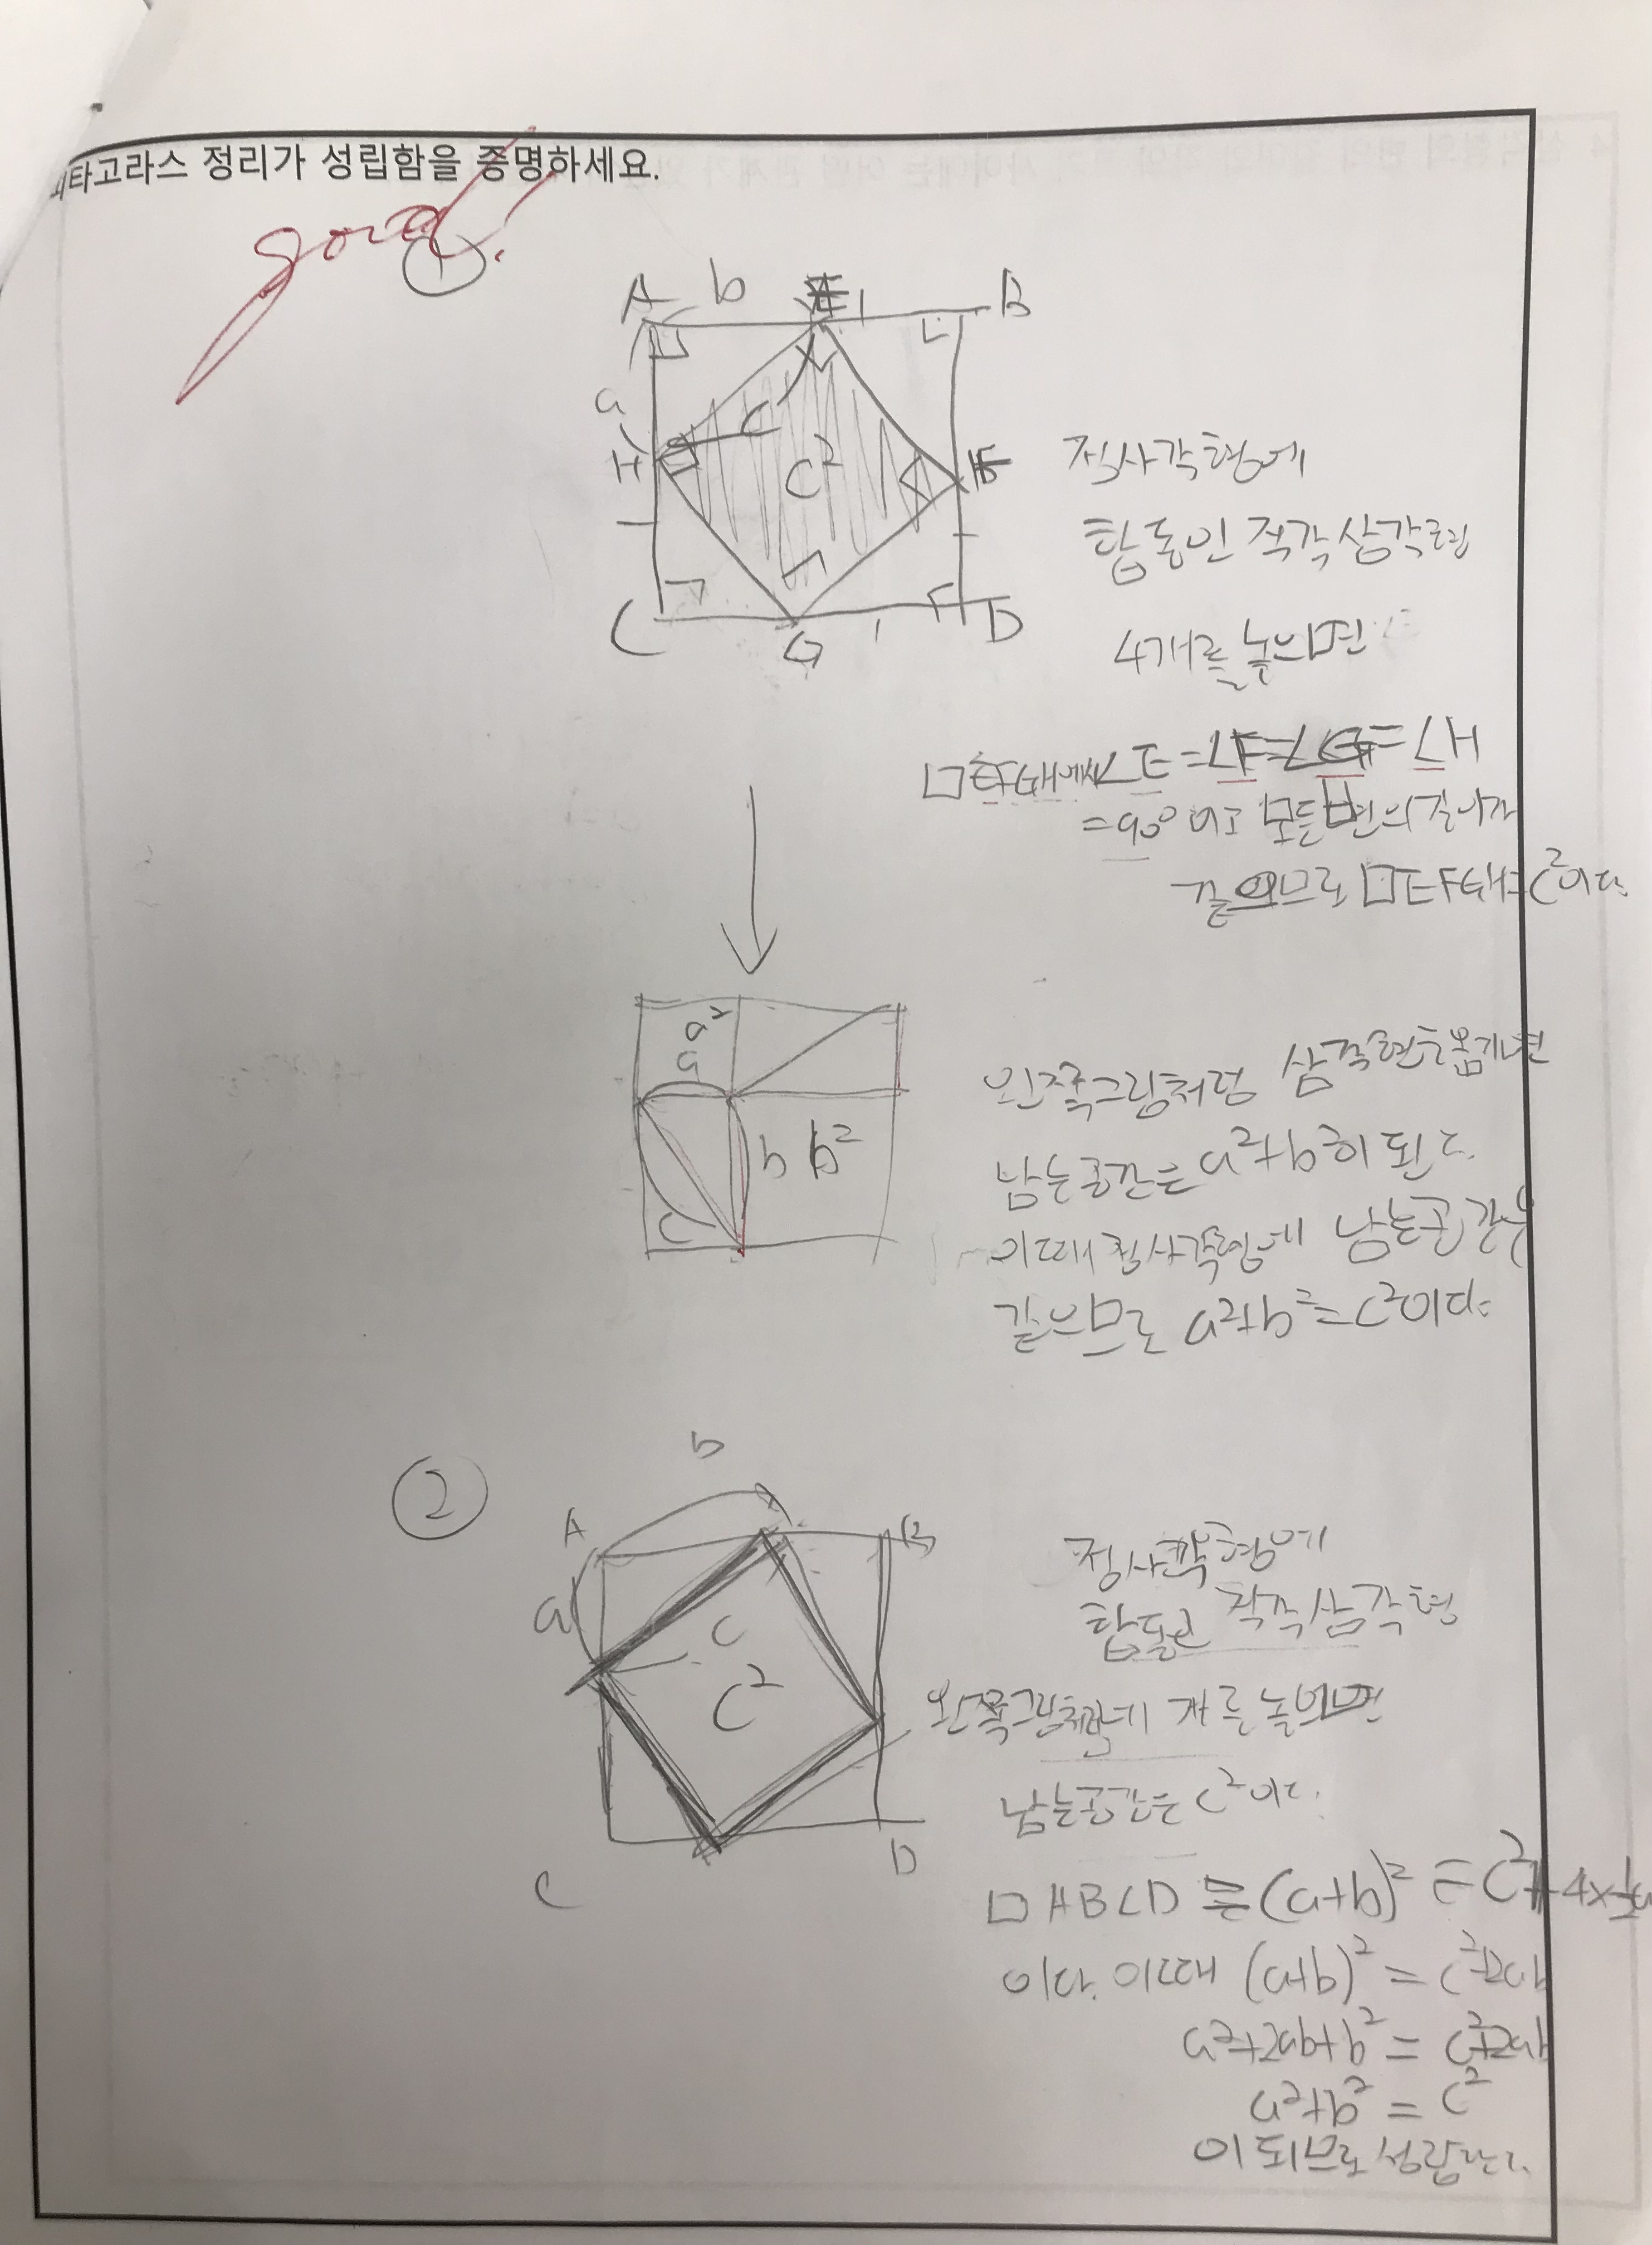 피타고라스 정리가 성립함을 증명하세요.
good!
①
A b E B
a
H C C² F
C G D
정사각형에
합동인 직각삼각형
4개를 놓으면
□EFGH에서 ∠E=∠F=∠G=∠H
=90°이고 모든 변의 길이가
같으므로 □EFGH=C²이다.
a²
a
b b²
C
왼쪽그림처럼 삼각형을 옮기면
남는공간은 a²+b²이 된다.
이때 정사각형에 남는공간은
같으므로 a²+b²=C²이다.
②
b
A B
a
C
C²
C D
정사각형에
합동인 직각삼각형
왼쪽그림처럼 네 개를 놓으면
남는공간은 C²이다.
□ABCD=(a+b)²=C²+4×½a
이다. 이때 (a+b)²=C²+2ab
a²+2ab+b²=C²+2ab
a²+b²=C²
이 되므로 성립한다.